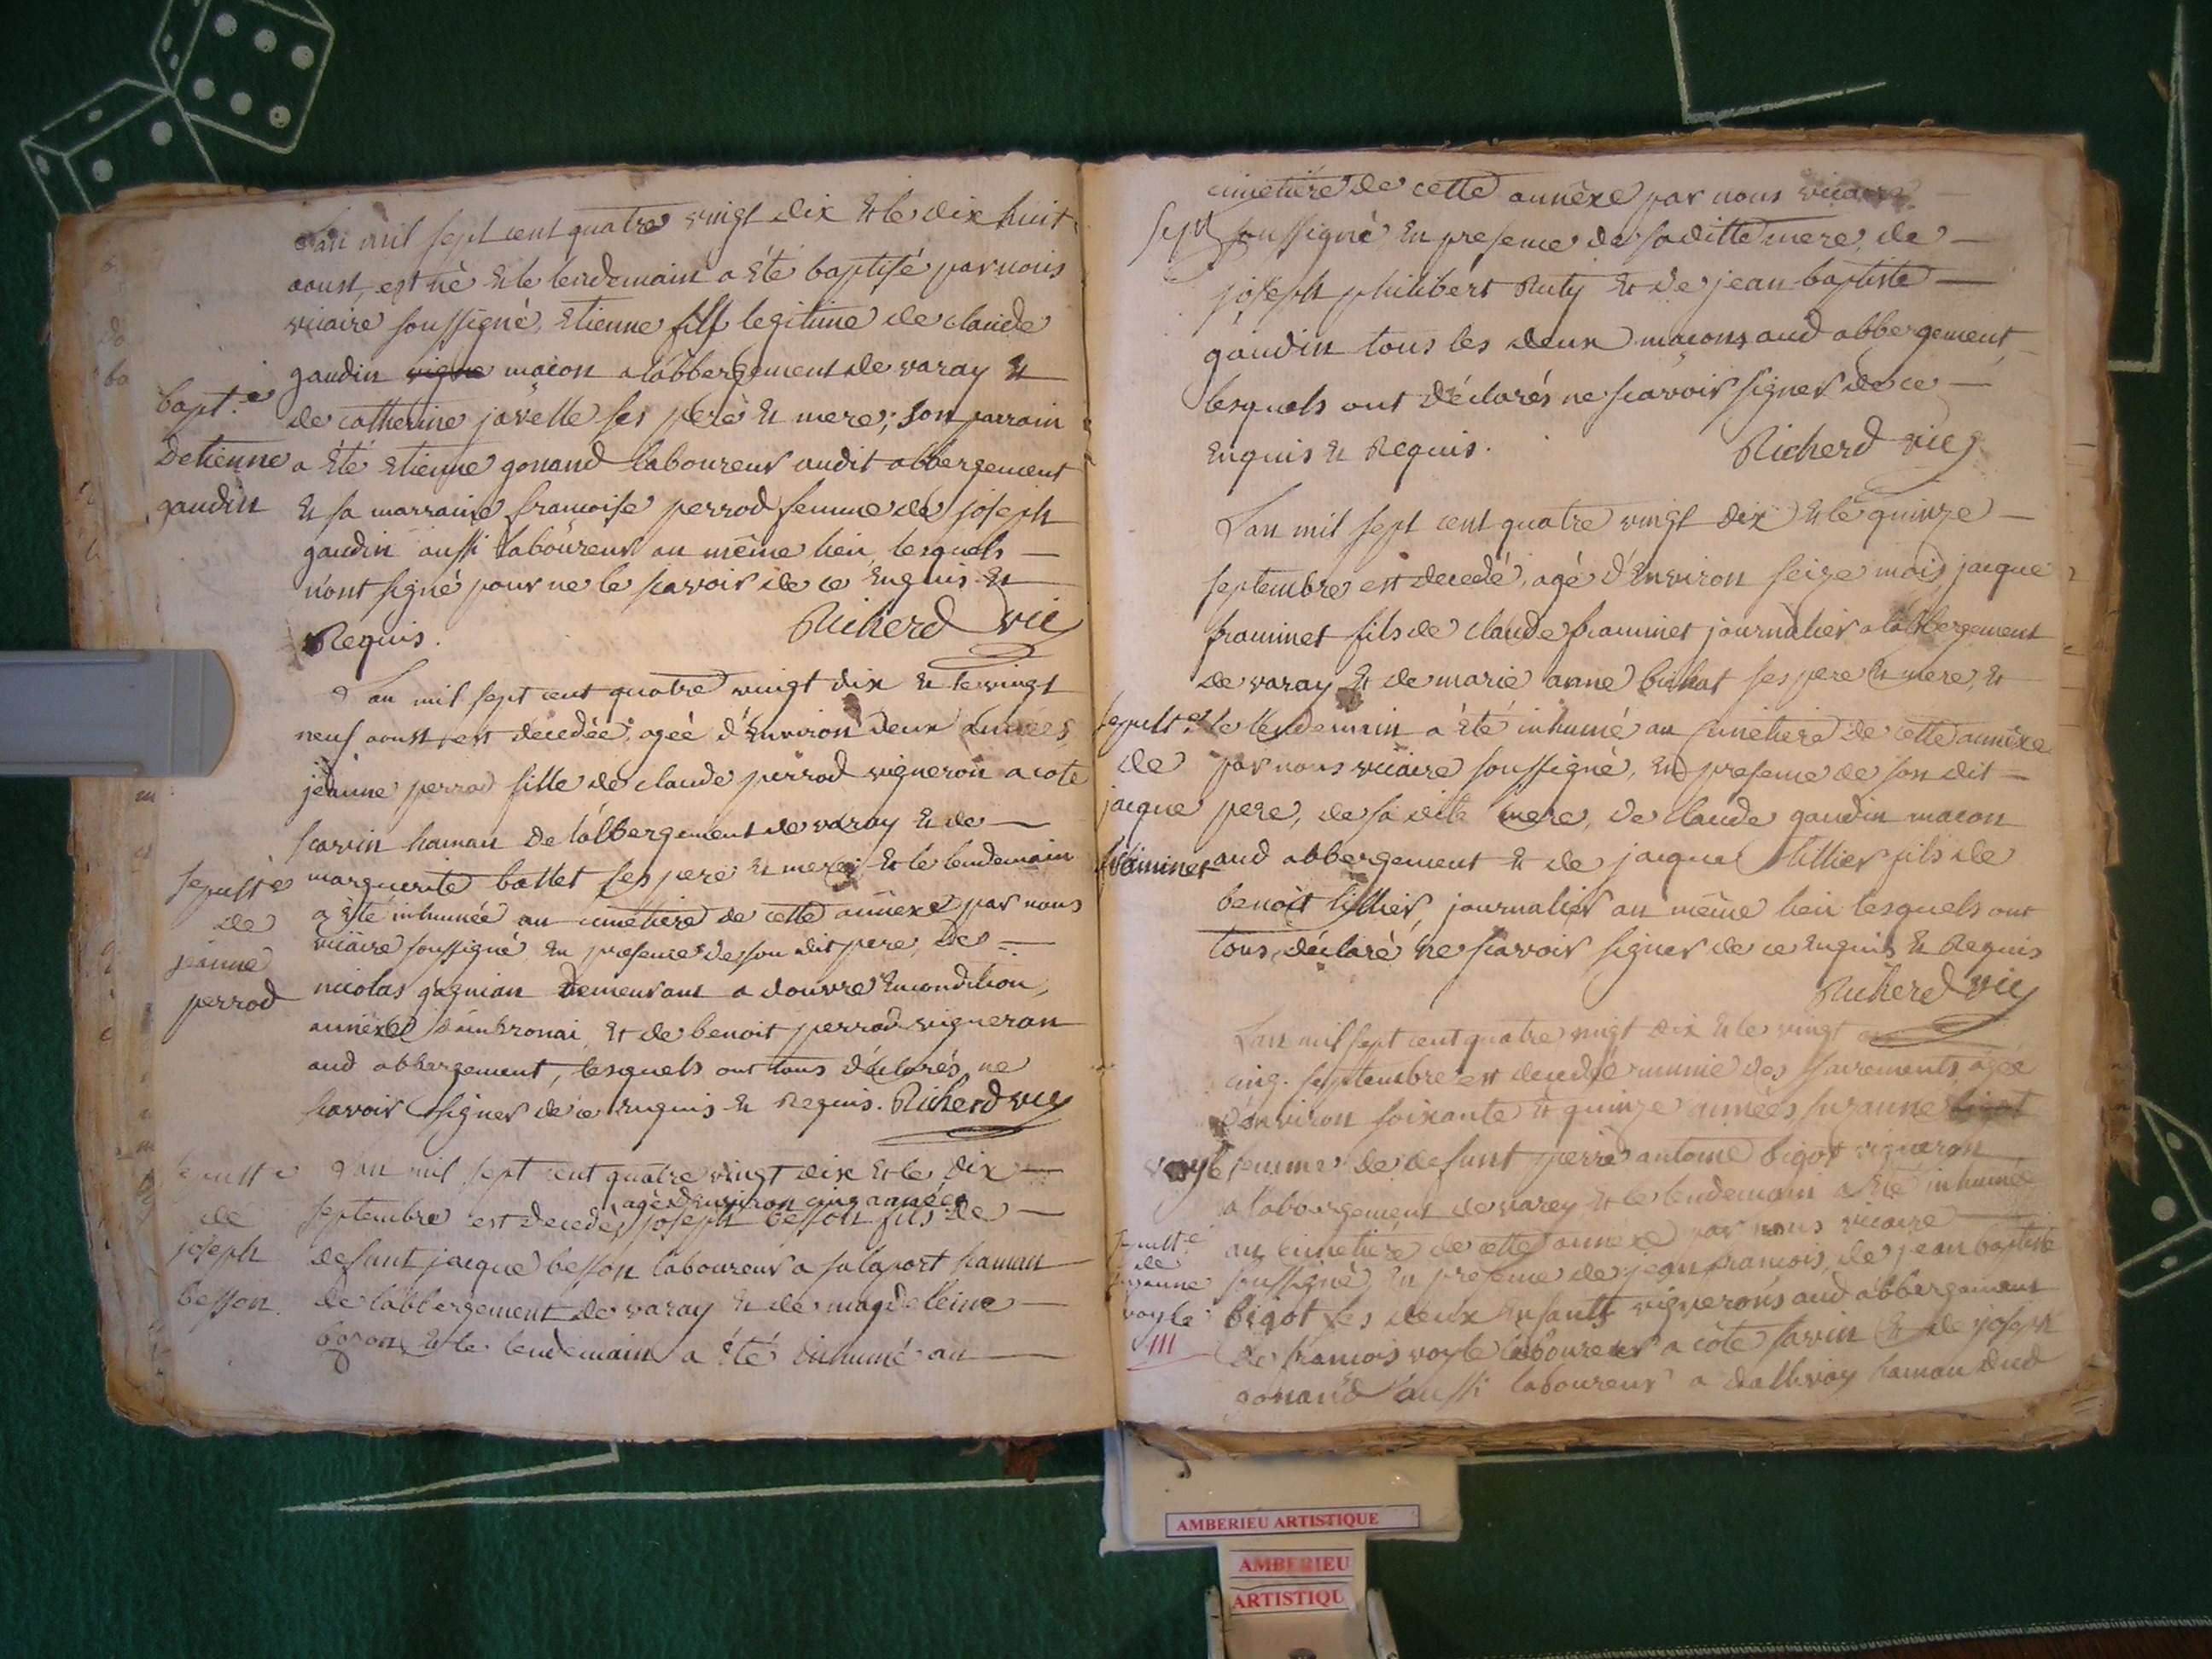 Lan mil sept cent quatre vingt dix & le dix huit
aoust, est né & le lendemain a été baptisé par nous
vicaire soussigné, Etienne fils legitime de claude
gaudin vigne maçon a labbergement de varay &
bapt.e
Detienne
gaudin
de catherine javelle ses pere & mere; son parrain
a été Etienne gonand laboureur audit abbergement
& sa marraine francoise perrod femme de joseph
gaudin aussi laboureur au même lieu, lesquels
n'ont signé pour ne le scavoir de ce Enquis &
Requis. Richerd vic
Lan mil sept cent quatre vingt dix & le vingt
neuf aoust, est decedée, agée d'Environ deux années
jeanne perrod fille de claude perrod vigneron a cote
savin hamau De labbergement de varay & de
sepult.e
de
jeanne
perrod
marguerite ballet ses pere & mere, & le lendemain
a été inhumée au cimetiere de cette annexe par nous
vicaire soussigné En presence de son dit pere, de
nicolas gagnian Demeurant a douvre En condition,
annexe d'ambronai, & de benoit perrod vigneron
aud abbergement, lesquels ont tous déclarés ne
scavoir signer de ce Enquis & Requis. Richerd vic
sepult e
de
joseph
besson
Lan mil sept cent quatre vingt dix & le dix
agé d'Environ cinq années
septembre est decedé, joseph besson fils de
defunt jacque besson laboureur a salaport hamau
de labbergement de varay & de magdeleine
boron, & le lendemain a été inhumé au
cimetiere de cette annèxe par nous vicaire
soussigné, En presence de sa ditte mere, de
joseph philibert Ruty & de jean-baptiste
gaudin tous les deux maçons aud abbergement,
lesquels ont déclarés ne scavoir signer de ce
Enquis & Requis. Richerd vic
Lan mil sept cent quatre vingt dix & le quinze
septembre est decedé, agé d'Environ seize mois, jacque
framinet fils de claude framinet journalier a labbergement
de varay & de marie anne bichat ses pere & mere, &
sepult.e
de
jacque
framinet
le lendemain a été inhumé au cimetiere de cette annèxe
par nous vicaire soussigné, En presence de son dit
pere, de sa dite mere, de claude gaudin maçon
aud abbergement & de jacque tillier fils de
benoit tillier, journalier au même lieu lesquels ont
tous déclaré ne scavoir signer de ce Enquis & Requis
Richerd vic
Lan mil sept cent quatre vingt dix & le vingt
cinq septembre est decedée munie des sacrements agée
d'Environ soixante & quinze années suzanne bigot
voyle femme de defunt pierre antoine bigot vigneron
a labbergement de varey & le lendemain a été inhumée
sepult.e
de
suzanne
voyle
111
au cimetiere de cette annèxe par nous vicaire
soussigné, En presence de jean francois, de jean baptiste
bigot ses deux Enfants vignerons aud abbergement
de francois voyle laboureur a côte savin & de joseph
gonand aussi laboureur a dalivoy hamau dud
AMBERIEU ARTISTIQUE
AMBERIEU
ARTISTIQU